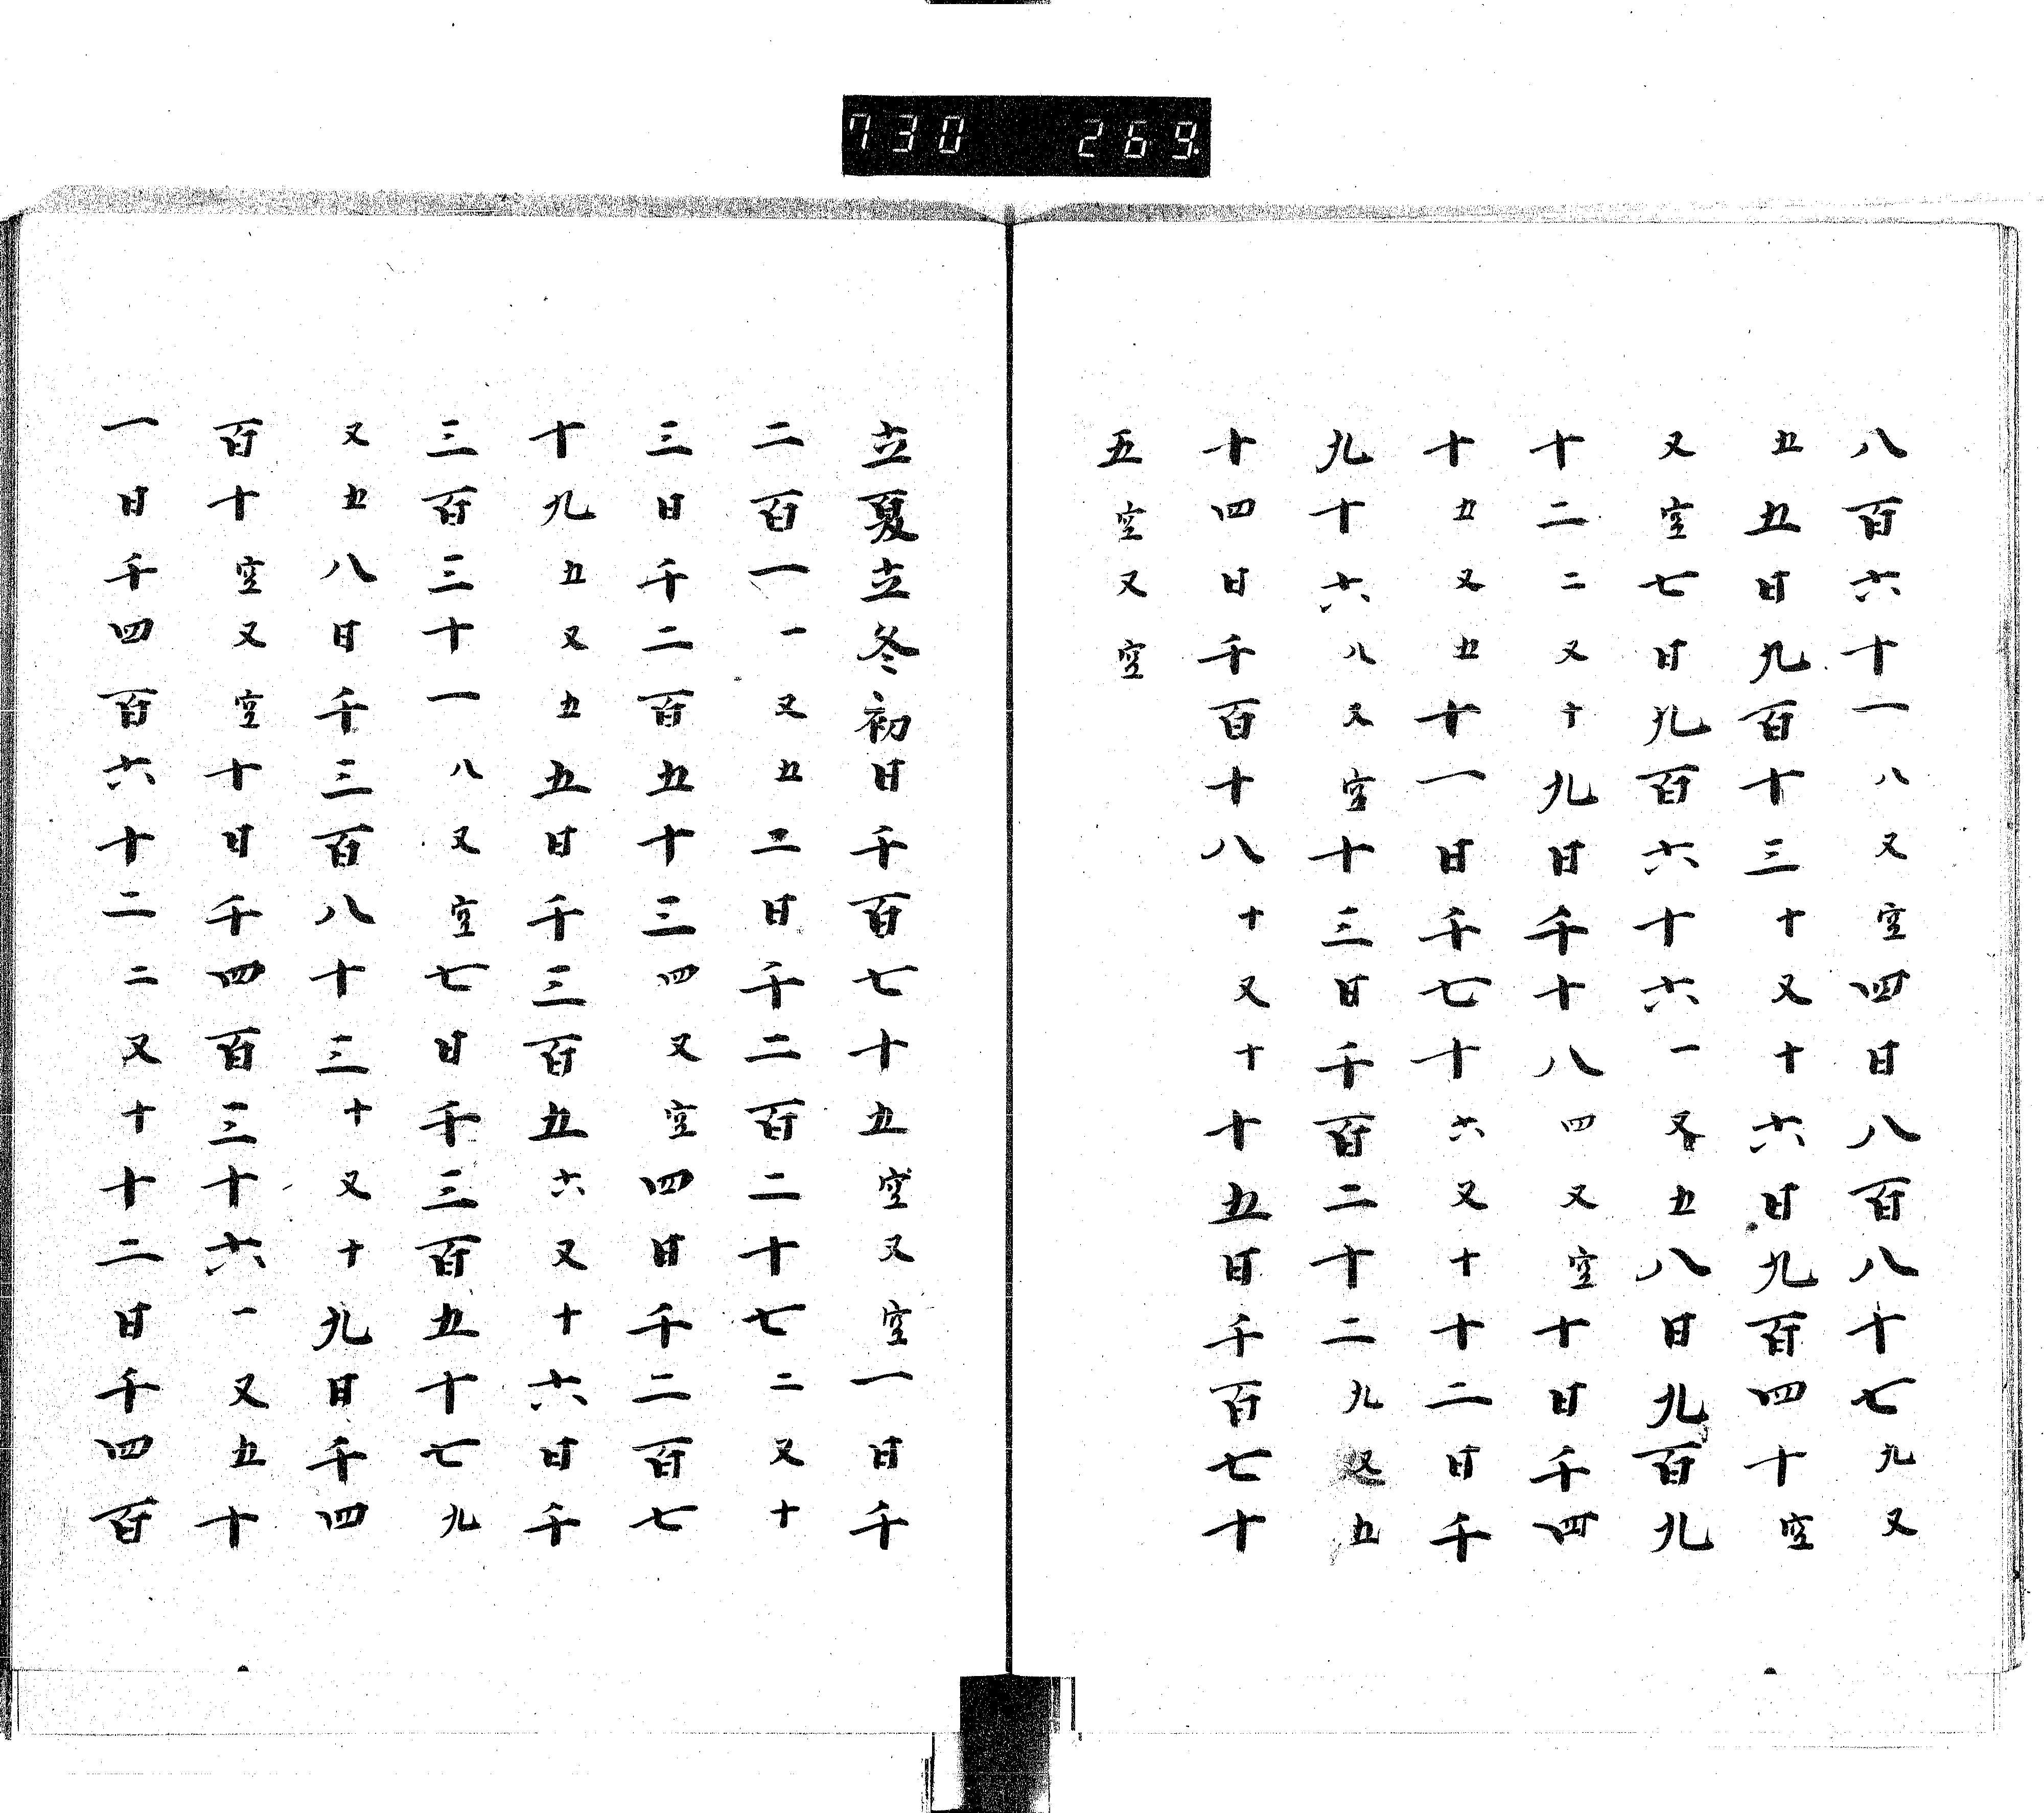 730 269
八百六十一八又空四日八百八十七九又
五五日九百十三十又十六日九百四十空
又空七日九百六十六一又五八日九百九
十二二又十九日千十八四又空十日千四
十五又五十一日千七十六又十十二日千
九十六八又空十三日千百二十二九又五
十四日千百十八十又十十五日千百七十
五空又空
立夏立冬初日千百七十五空又空一日千
二百一一又五二日千二百二十七二又十
三日千二百五十三四又空四日千二百七
十九五又五五日千三百五六又十六日千
三百三十一八又空七日千三百五十七九
又五八日千三百八十三十又十九日千四
百十空又空十日千四百三十六一又五十
一日千四百六十二二又十十二日千四百